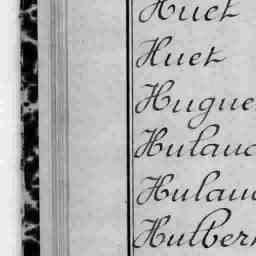 Huet
Huet
Hugue
Hulauc
Hulauc
Hulber